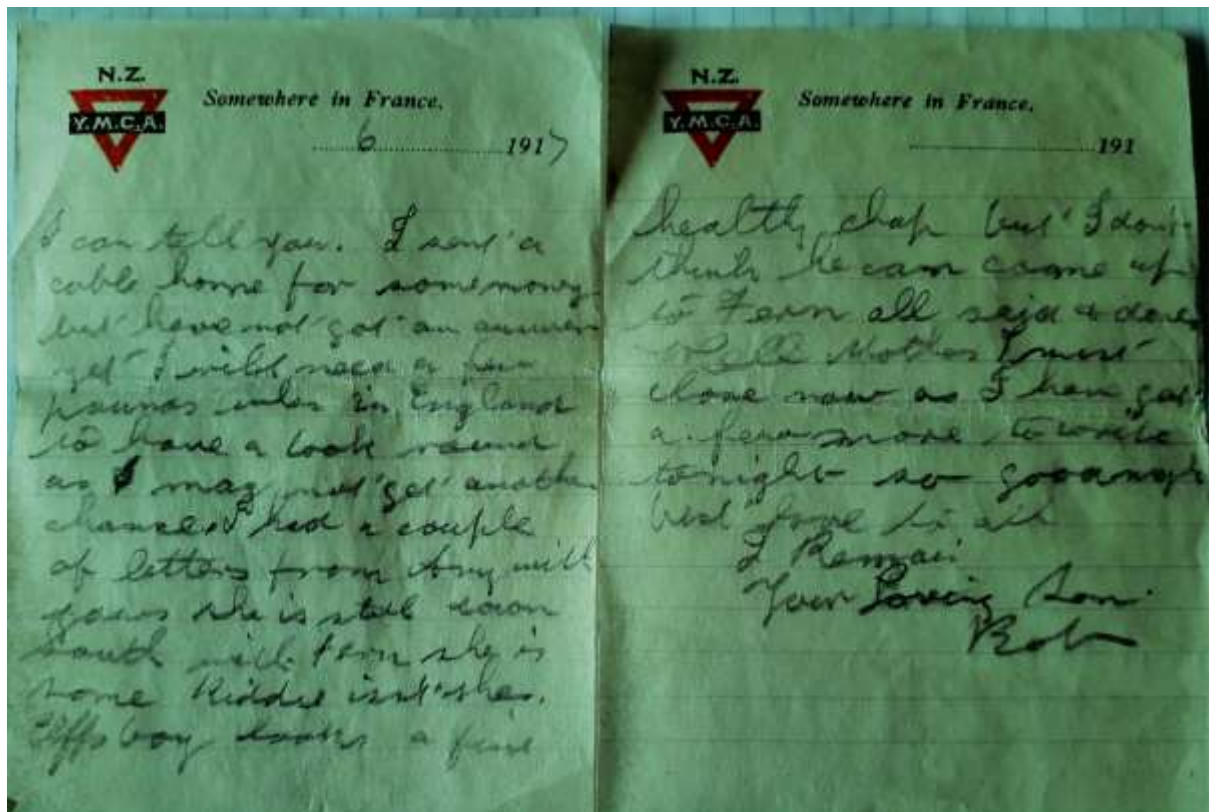 N.Z.
Y.M.C.A.
Somewhere in France.
6 1917
I can tell you. I sent a
cable home for some money
but have not got an answer
yet I will need a few
pounds when in England
to have a look round
as I may not get another
chance. I had a couple
of letters from Amy with
yours she is still down
South with Fern she is
some Kiddie isnt she.
Cliffs boy looks a fine
N.Z.
Y.M.C.A.
Somewhere in France.
191
healthy chap but I dont
think he can come up
to Fern all said & done
Well Mother I must
close now as I have got
a few more to write
tonight so goodnight
best love to all
I Remain
Your Loving Son.
Bob